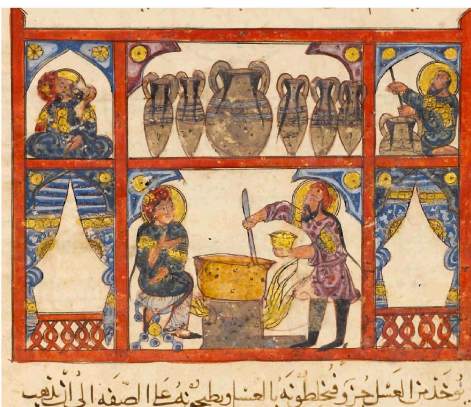 يوخذ من العسل جزو فيخلطونه بالعسل ويطبخونه على الصفه الى ان يذهب